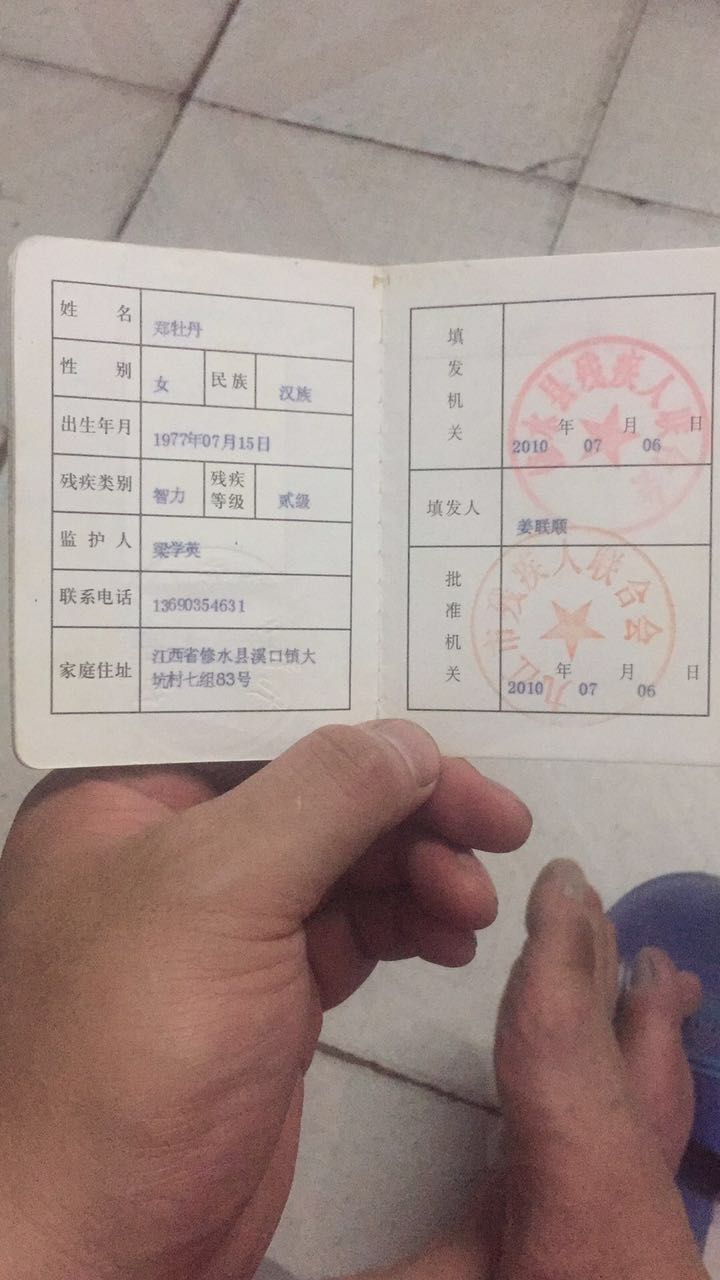 姓名 郑牡丹
性别 女 民族 汉族
出生年月 1977年07月15日
残疾类别 智力 残疾等级 贰级
监护人 梁学英
联系电话 13690354631
家庭住址 江西省修水县溪口镇大
坑村七组83号
填发机关
水县残疾人联
2010年07月06日
填发人 姜联顺
批准机关
九江市残疾人联合会
2010年07月06日